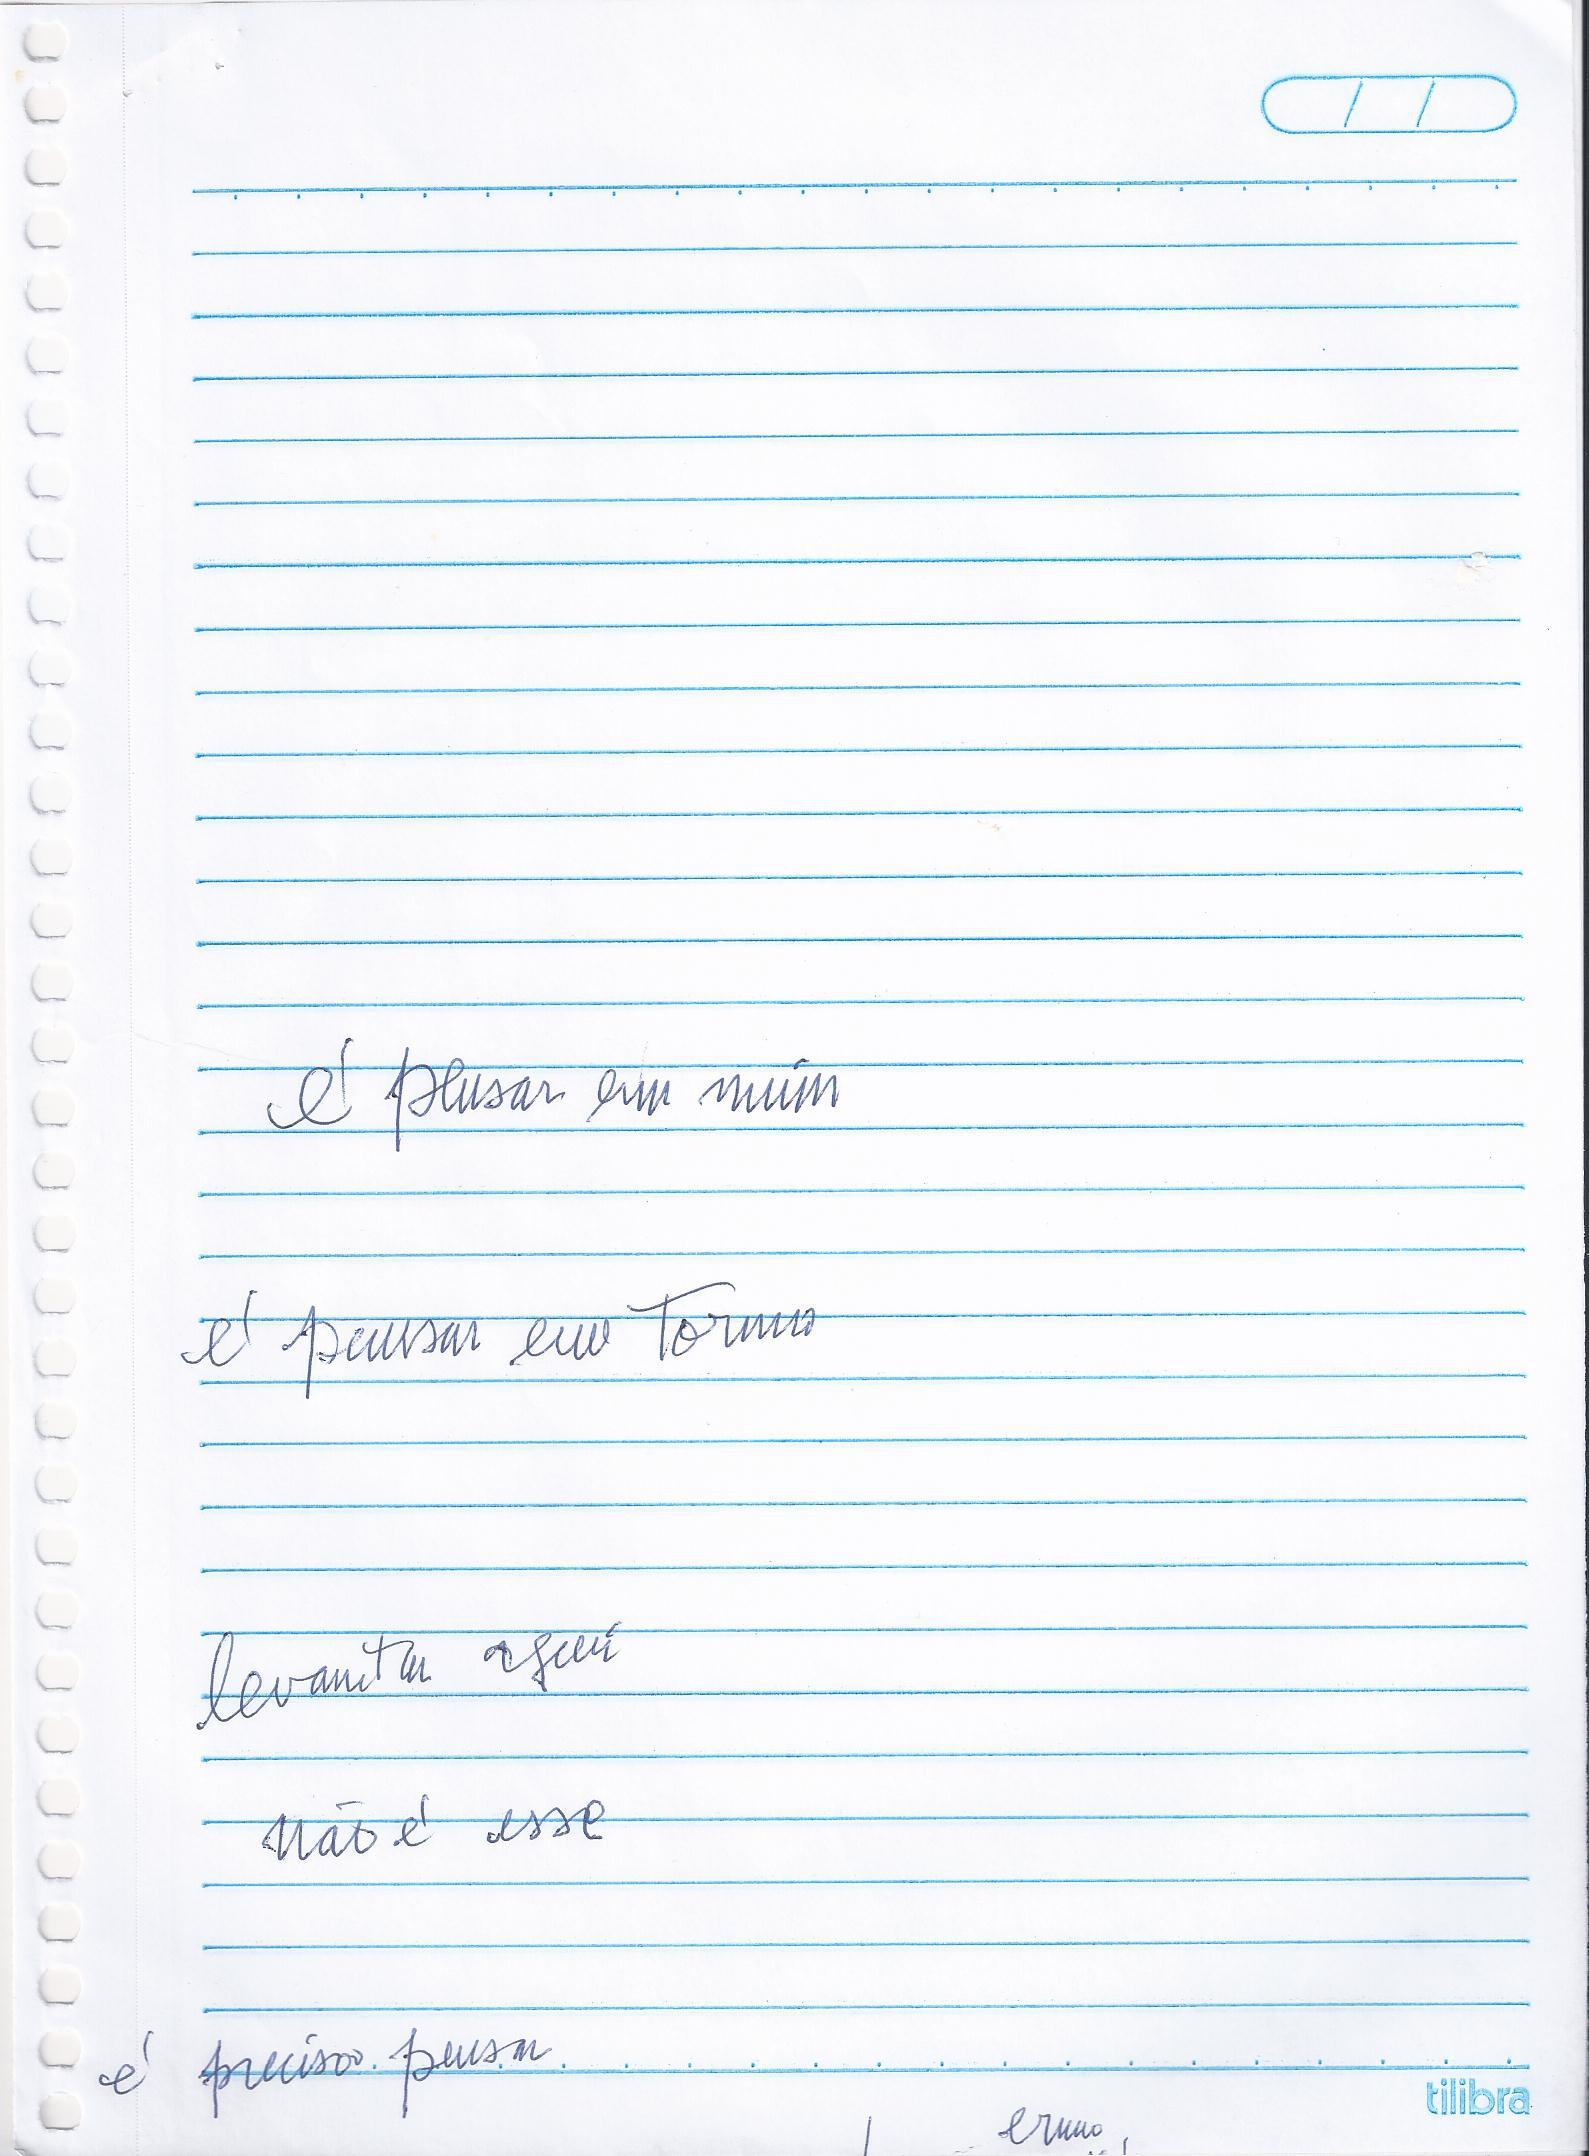 é pensar em mim
é pensar em torno
levantar aqui
não é esse
é preciso pensar
tilibra